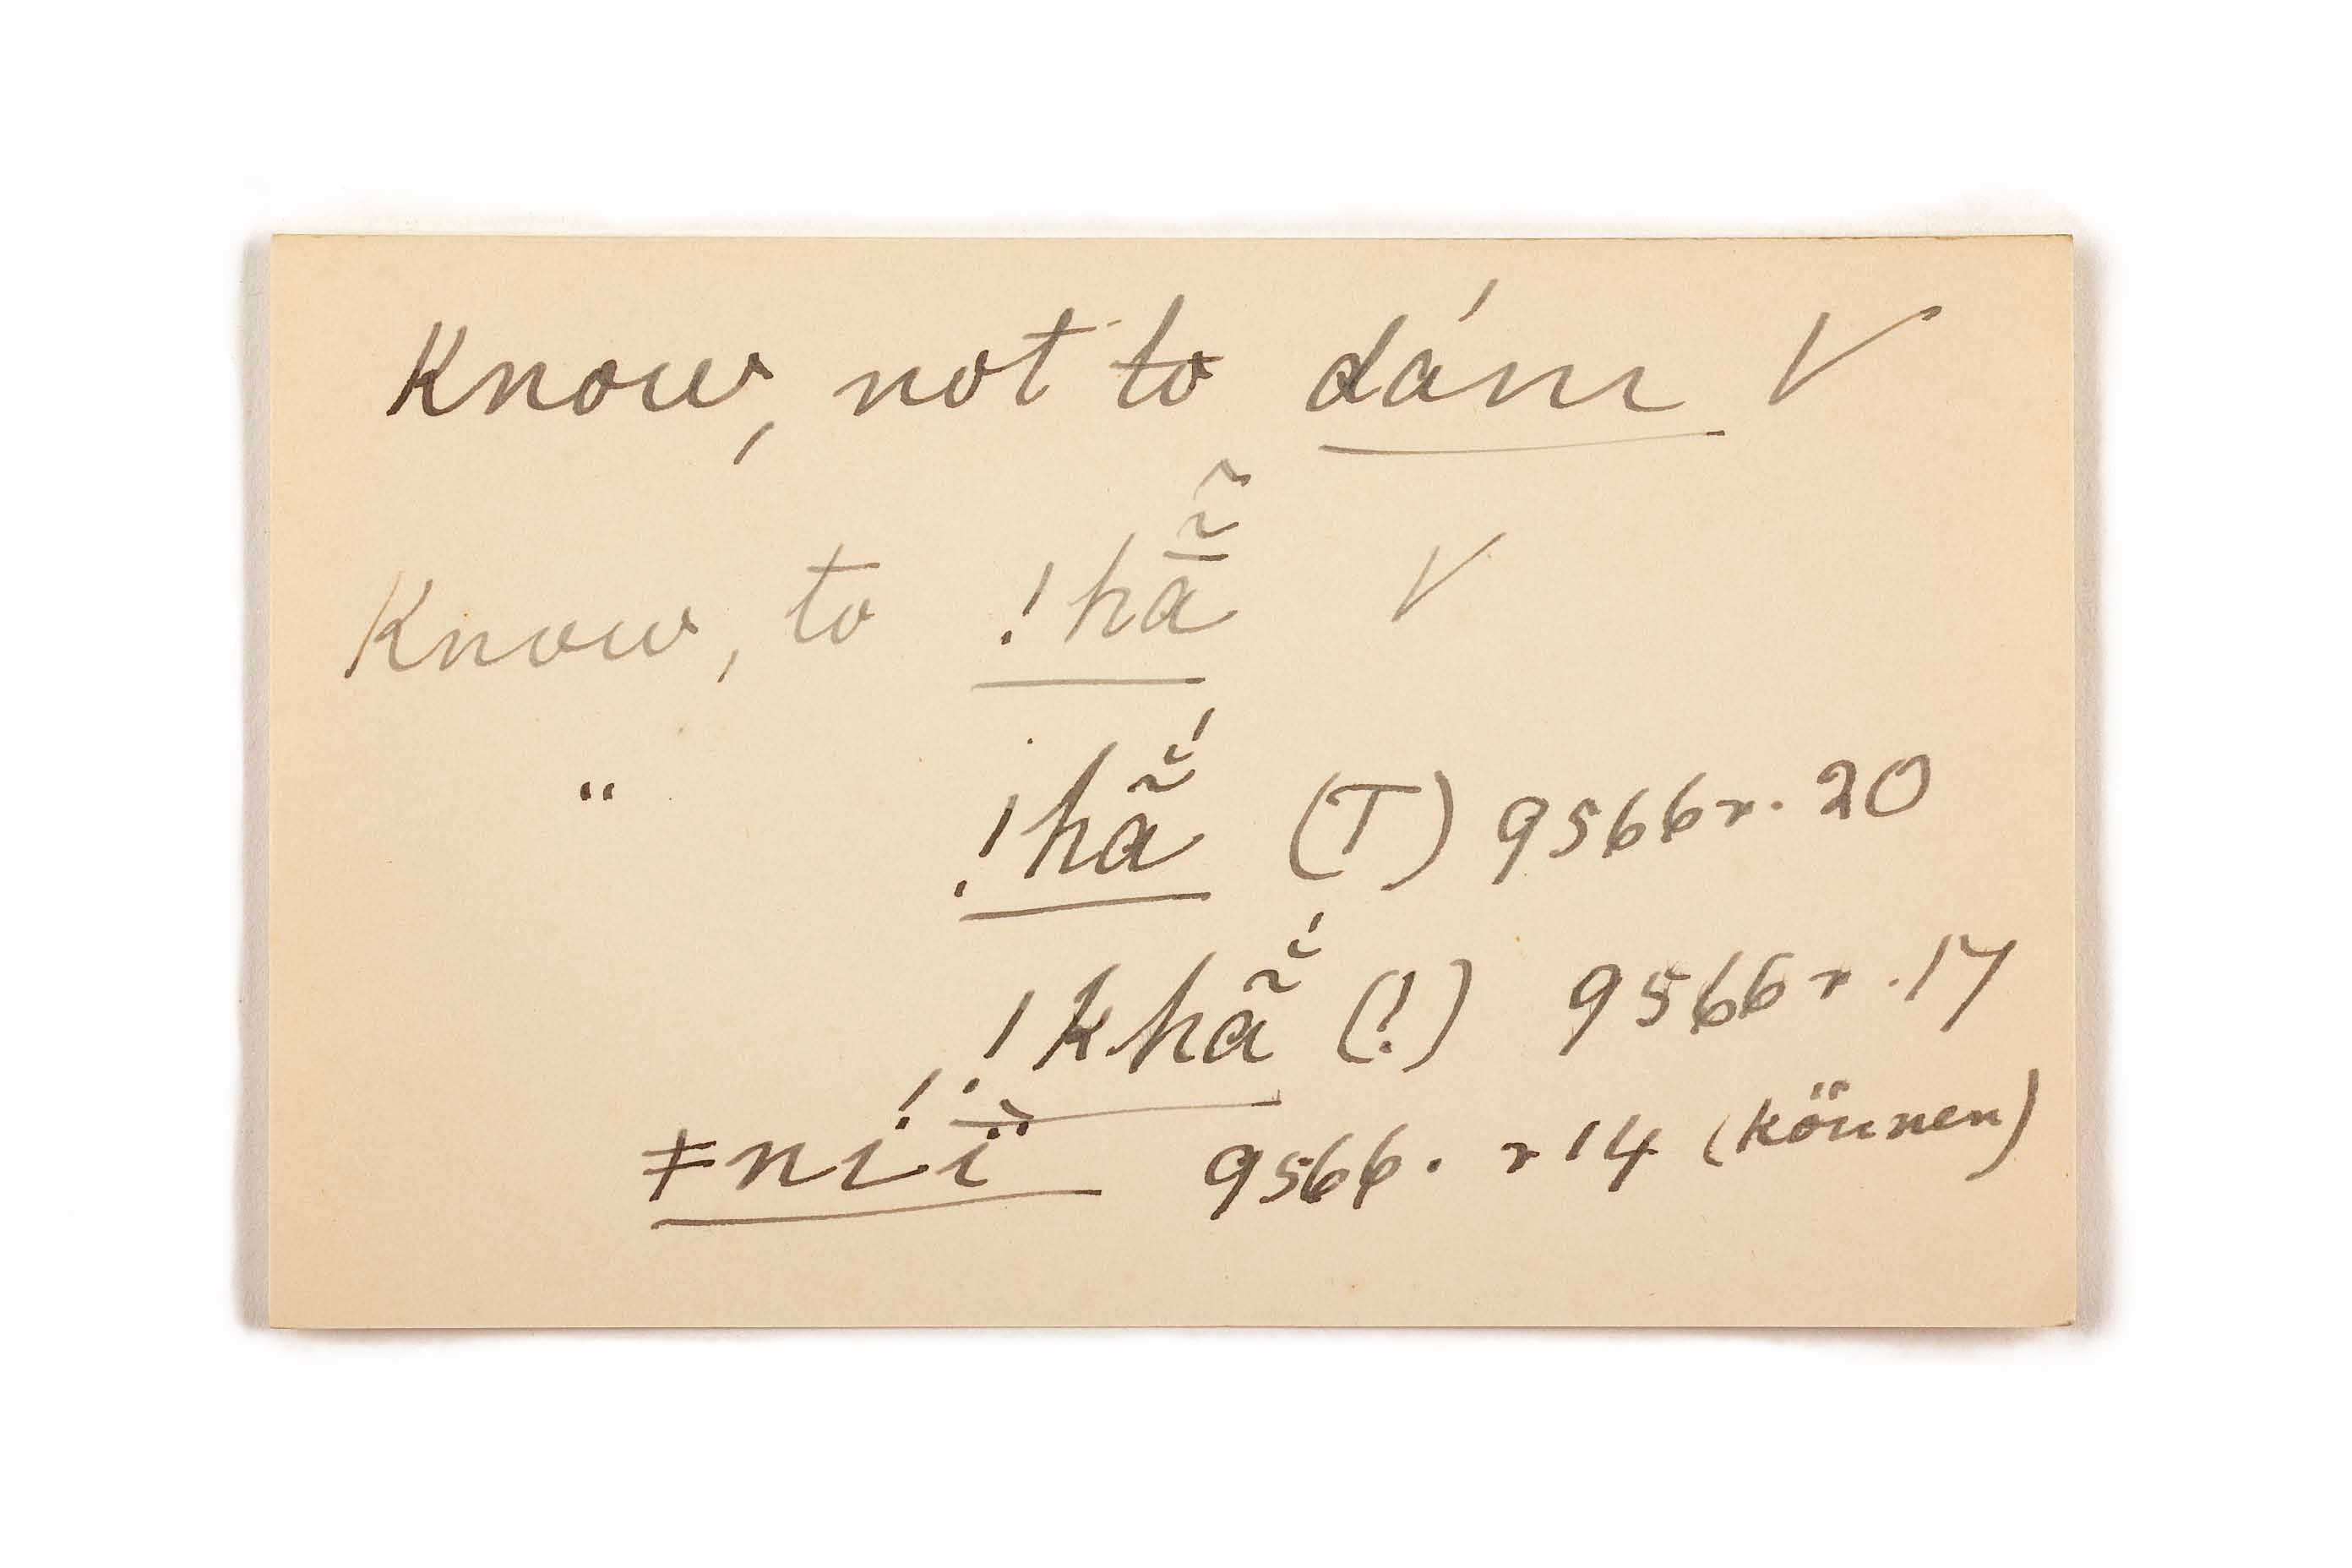 Know, not to dám V
Know, to !hã̄̃̑ V
" !hã̆́ (T) 9566r. 20
!khã̆́ (!) 9566r. 17
ǂni!ï̀ 9566. r 14 (können)